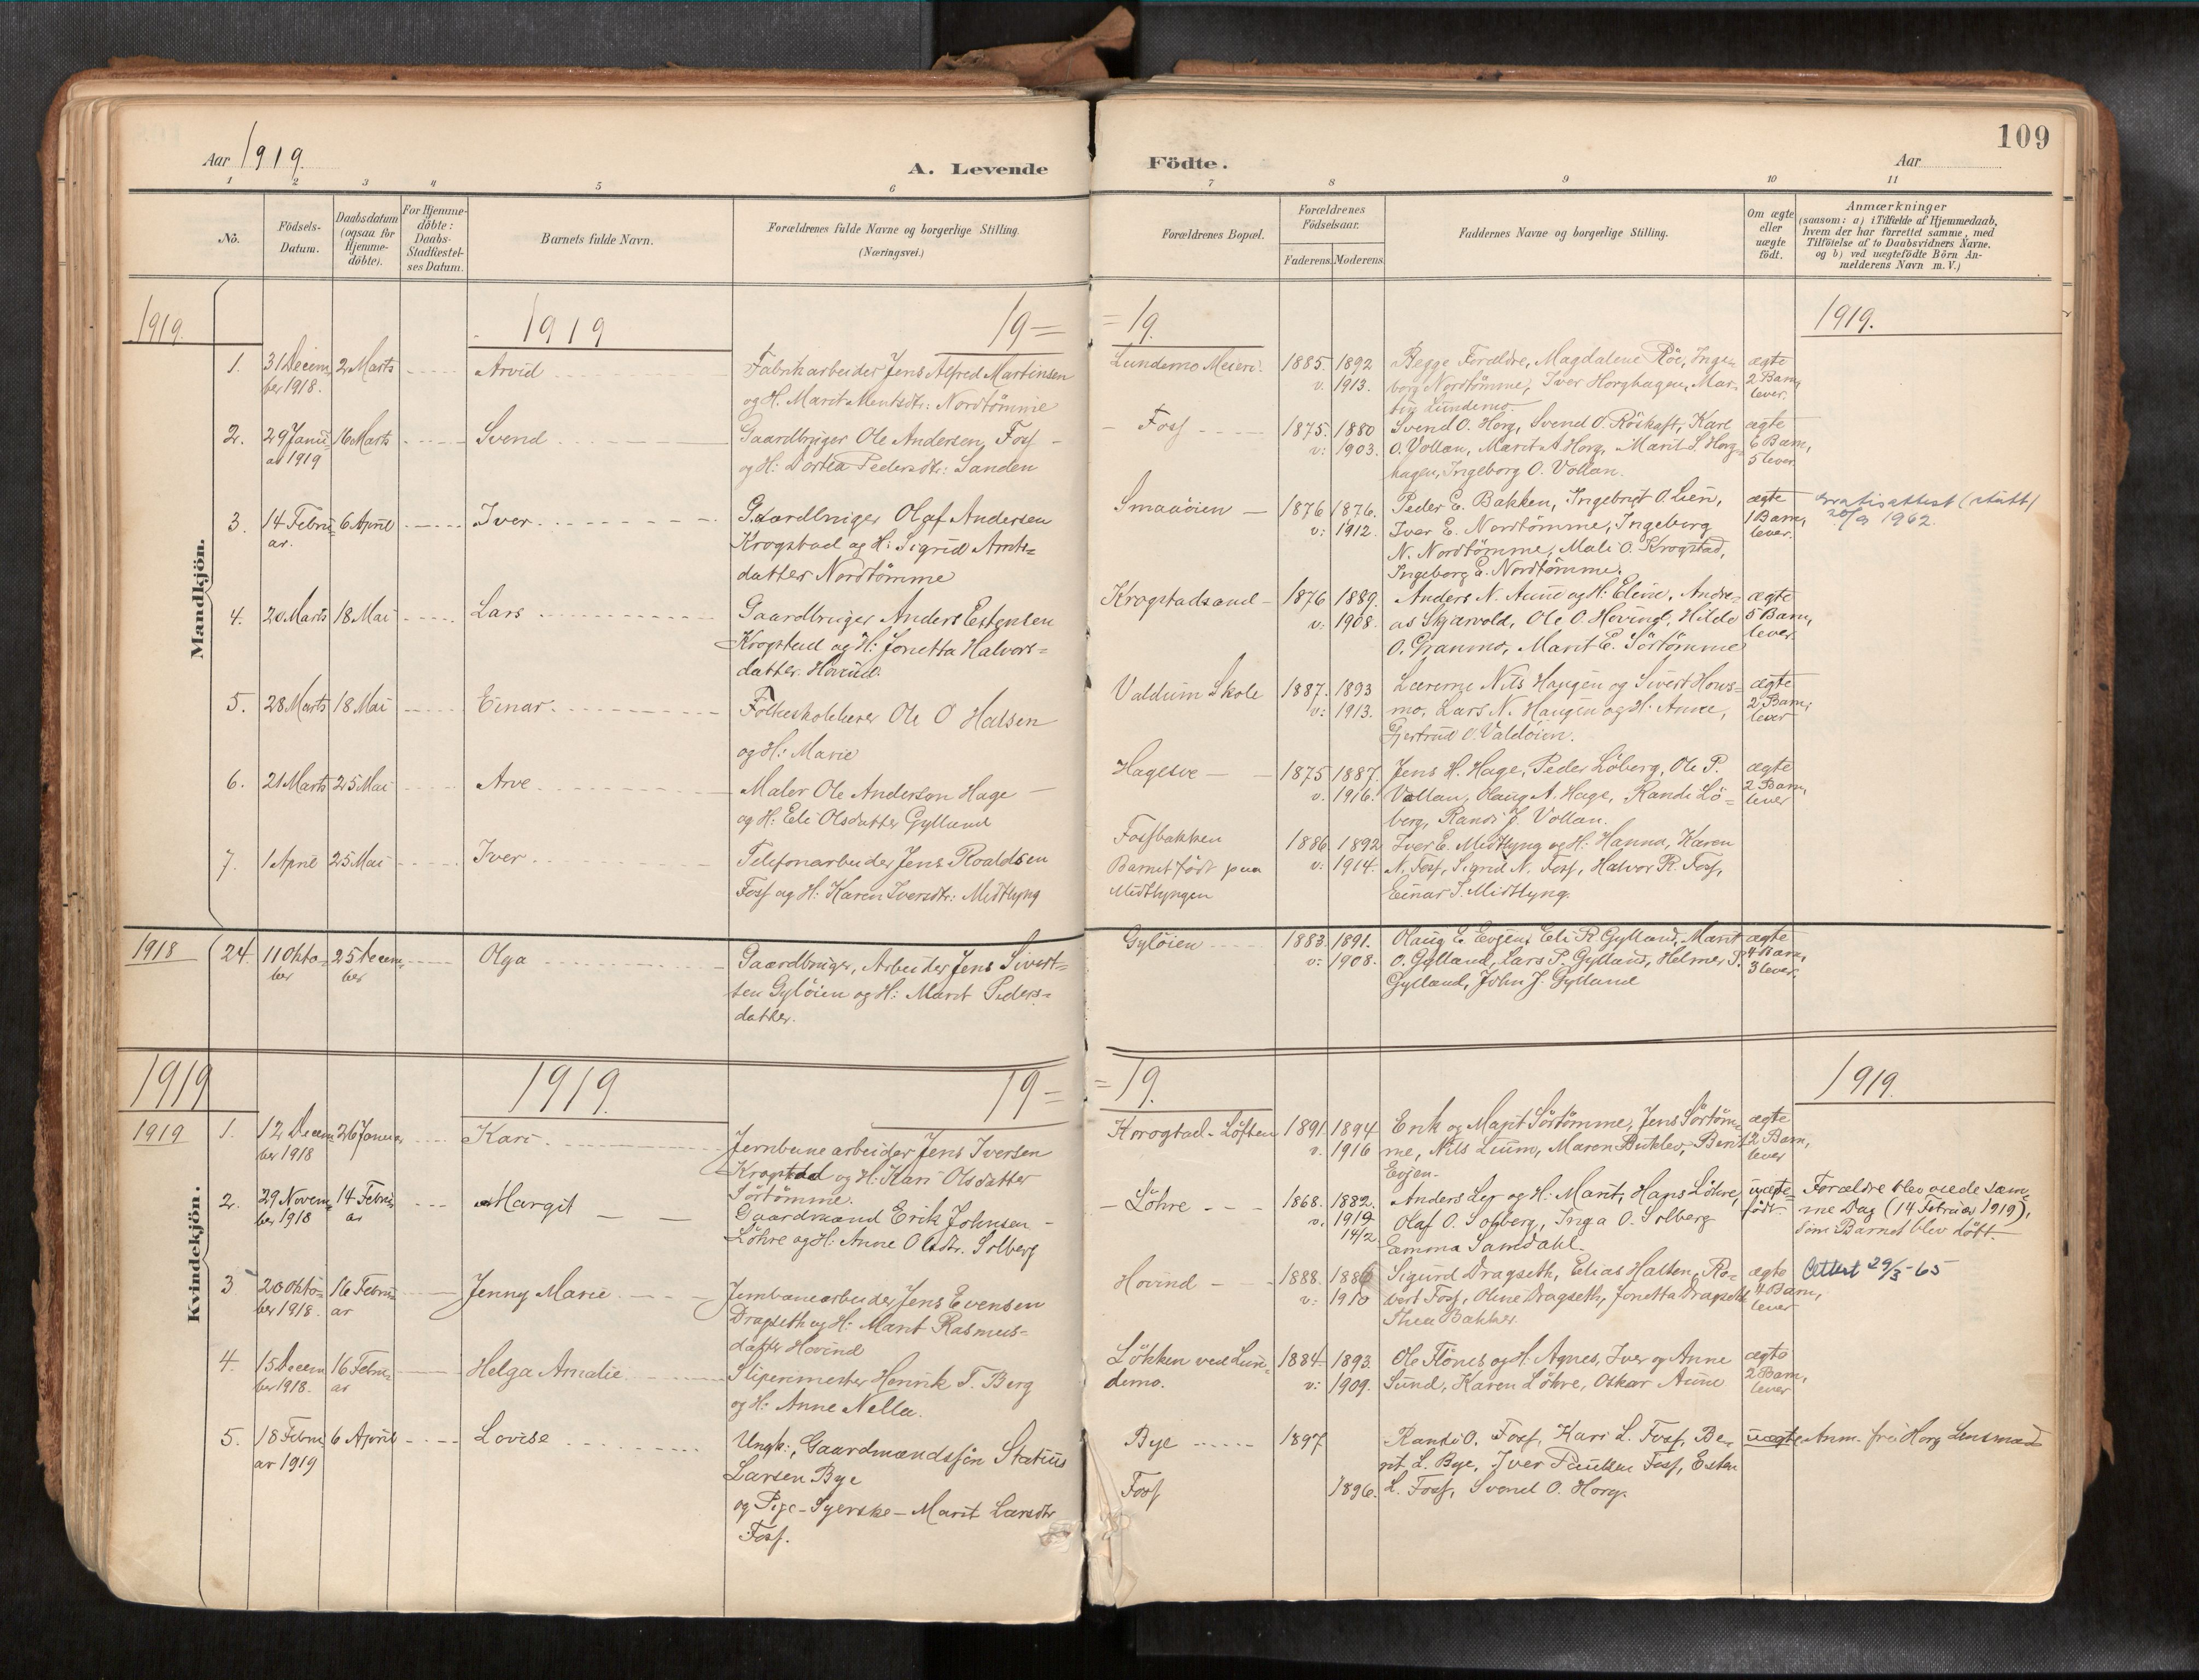 109
Aar 1919.
A. Levende Födte.
Aar
1 2 3 4 5 6 7 8 9 10 11
No.
Födsels-Datum.
Daabsdatum (ogsaa for Hjemme-döbte).
For Hjemme-döbte: Daabs-Stadfæstel-ses Datum.
Barnets fulde Navn.
Forældrenes fulde Navne og borgerlige Stilling. (Næringsvei.)
Forældrenes Bopæl.
Forældrenes Födselsaar.
Faderens. Moderens.
Faddernes Navne og borgerlige Stilling.
Om ægte eller uægte födt.
Anmærkninger
(saasom: a) i Tilfælde af Hjemmedaab,
hvem der har forrettet samme, med
Tilföielse af to Daabsvidners Navne,
og b) ved uægtefödte Börn An-
melderens Navn m. V.)
Mandkjön.
1919. 1919 19= =19. 1919.
1. 31 Decem- 2 Marts Arvid Fabrikarbeider Jens Alfred Martinsen Lundemo Meieri. 1885. 1892 Begge Forældre, Magdalene Röe, Inge- ægte
ber 1918. og H. Marit Mentsdtr: Nordtömme v. 1913. borg Nordtömme, Iver Horghagen, Mar- 2 Barn,
tin Lundemo. lever.
2. 29 Janu- 16 Marts Svend Gaardbruger Ole Andersen Foss Foss 1875. 1880 Svend O. Horg, Svend O. Röskaft, Karl ægte
ar 1919 og H: Dortea Pedersdtr: Sanden v: 1903. O. Vollan, Marit A Horg, Marit S. Horg- 6 Barn,
hagen, Ingeborg O. Vollan. 5 lever.
3. 14 Febru- 6 April Iver Gaardbruger Olaf Andersen Smaaöien 1876 1876. Peder E. Bakken, Ingebrigt O. Lien, ægte
ar. Krogstad og H: Sigrid Arnts- v: 1912. Iver E. Nordtömme, Ingeborg 1 Barn, 20/9 1962.
datter Nordtömme N. Nordtömme, Mali O. Krogstad, lever.
Ingeborg E. Nordtömme.
4. 20 Marts 18 Mai Lars Gaardbruger Anders Estensen Krogstadsand 1876 1889. Anders N. Aune og H: Eline, Andre- ægte
Krogstad og H: Jonetta Halvors- v: 1908. as Skjærvold, Ole O. Hovind, Hilde 5 Barn,
datter Hovind. O. Granmo, Marit E. Sörtömme lever.
5. 28 Marts 18 Mai Einar Folkeskolelærer Ole O Halsen Valdum Skole 1887. 1893 Lærerne Nils Haugen og Sivert Hows- ægte
og H: Marie v: 1913. mo, Lars N. Haugen og H. Anne, 2 Barn,
Gjertrud O. Valdöien. lever
6. 21 Marts 25 Mai Arve Maler Ole Anderson Hage Hagesve 1875 1887. Jens H. Hage, Peder Löberg, Ole P. ægte
og H: Eli Olsdatter Gylland v. 1916. Vollan, Olaug A. Hage, Randi Lö- 2 Barn,
berg, Randi J. Vollan. lever
7. 1 April 25 Mai Iver Telefonarbeider Jens Roaldsen Fossbakken 1886 1892 Iver E. Midtlyng og H: Hanna, Karen
Foss og H: Karen Iversdtr: Midtlyng Barnet födt paa v: 1914. N. Foss, Sigrid N. Foss, Halvor R. Foss,
Midtlyngen Einar I. Midtlyng.
1918 24. 11 Okto- 25 Decem- Olga Gaardbruger, Arbeider Jens Sivert- Gylöien 1883. 1891. Olaug E. Evjen, Eli R. Gylland, Marit ægte
ber ber sen Gylöien og H: Marit Peders- v: 1908. O. Gylland, Lars P. Gylland, Helmer P. 4 Barn,
datter. Gylland, John J. Gylland 3 lever.
1919 1919. 19= =19. 1919.
Kvindekjön.
1919 1. 12 Decem- 26 Januar Kari Jernbanearbeider Jens Iversen Krogstad-Löften 1891 1894 Erik og Marit Sörtömme, Jens Sörtöm- ægte
ber 1918 Krogstad og H: Kari Olsdatter v. 1916 me, Nils Lium, Maren Buklev, Berit 2 Barn,
Sörtömme. Evjen. lever
2. 29 Novem- 14 Febru- Margit Gaardmand Erik Johnsen Löhre 1868. 1882. Anders Ler og H: Marit, Hans Löhre, uægte- Forældre blev viede sam-
ber 1918 ar Löhre og H: Anne Olsdtr. Solberg v. 1919 Olaf O. Solberg, Inga O. Solberg födt. me Dag (14 Februar 1919),
14/2 Emma Samdahl. som Barnet blev döbt.
3 20 Okto- 16 Febru- Jenny Marie Jernbanearbeider Jens Evensen Hovind 1888. 1886 Sigurd Dragseth, Elias Halten, Ro- ægte Attest 29/3-65
ber 1918. ar Dragseth og H: Marit Rasmus- v: 1910 bert Foss, Oline Dragseth, Jonetta Dragseth 4 Barn,
datter Hovind Thea Bakker. lever
4. 15 Decem 16 Febru- Helga Amalie Sliperimester Henrik T. Berg Lökken ved Lun- 1884. 1893. Ole Flönes og H: Agnes, Iver og Anne ægte
ber 1918. ar og H: Anne Nella. demo. v: 1909. Sund, Karen Löhre, Oskar Aune 2 Barn,
lever
5. 18 Febru 6 April Lovise Ungk:, Gaardmandssön Statius Bye 1897. Randi O. Foss, Kari L. Foss, Be- uægte Anm. fra Horg Lensmand
ar 1919 Larsen Bye rit L. Bye, Iver Paulsen Foss, Esten
og Pige-Syerske-Marit Larsdtr Foss 1896. L. Foss, Svend O. Horg.
Foss.